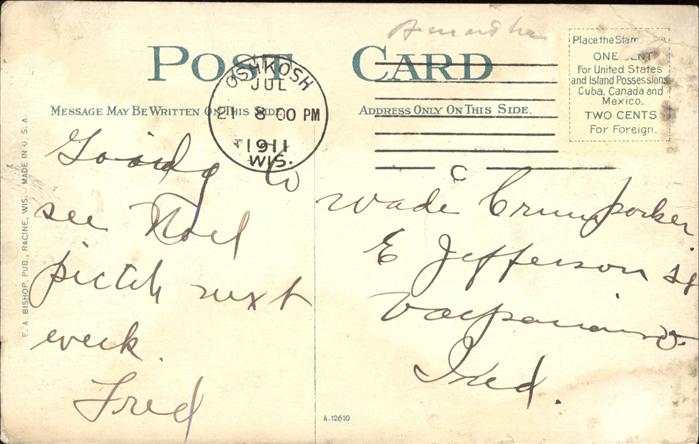 POST CARD
Place the Stamp
ONE CENT
For United States
and Island Possessions
Cuba, Canada and
Mexico.
TWO CENTS
For Foreign.
OSHKOSH
JUL
8 00 PM
1911
WIS.
C
MESSAGE MAY BE WRITTEN ON THIS SIDE.
ADDRESS ONLY ON THIS SIDE.
Going to
see Noel
pitch next
week.
Fred
Wade Crumpacker
E Jefferson St
Valparaiso
Ind.
E. A. BISHOP, PUB., RACINE, WIS. MADE IN U. S. A.
A.12610